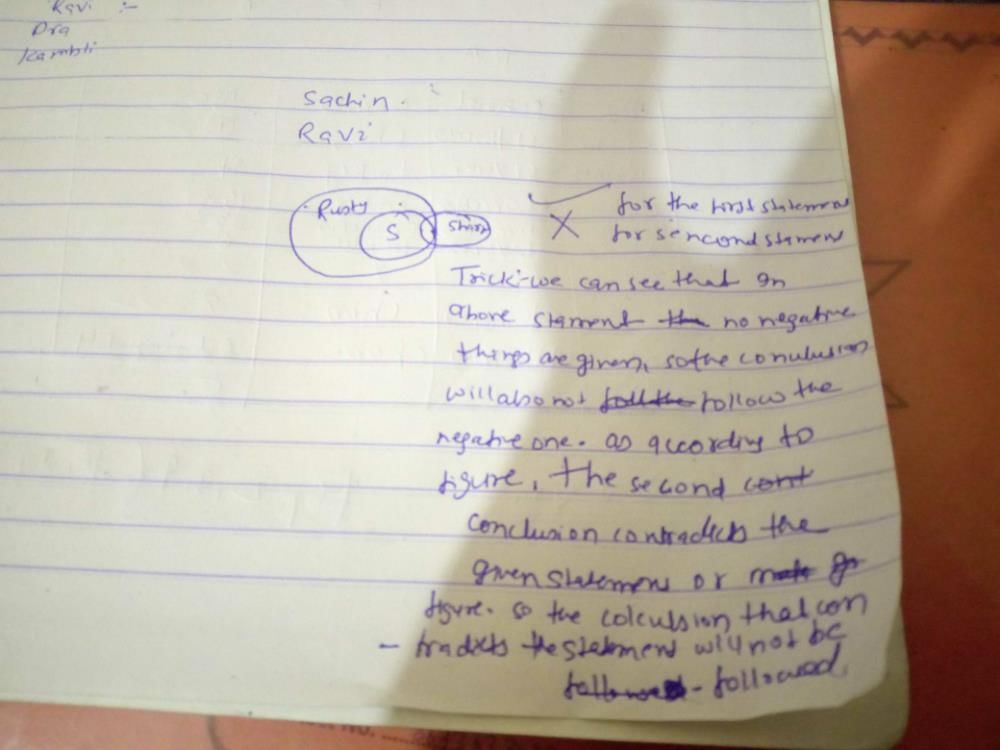 Ravi :-
Dra
Kambli
Sachin.
Ravi
Rusty
S
for the first statement
for sencond stament
Trick:-we can see that In
above stament no negative
things are given, so the conulusion
will also not follow the
negative one. as according to
figure, The second cont
conclusion contradicts the
given statement or
figure. so the colculssion that con
- tradicts the statement will not be
- followed.